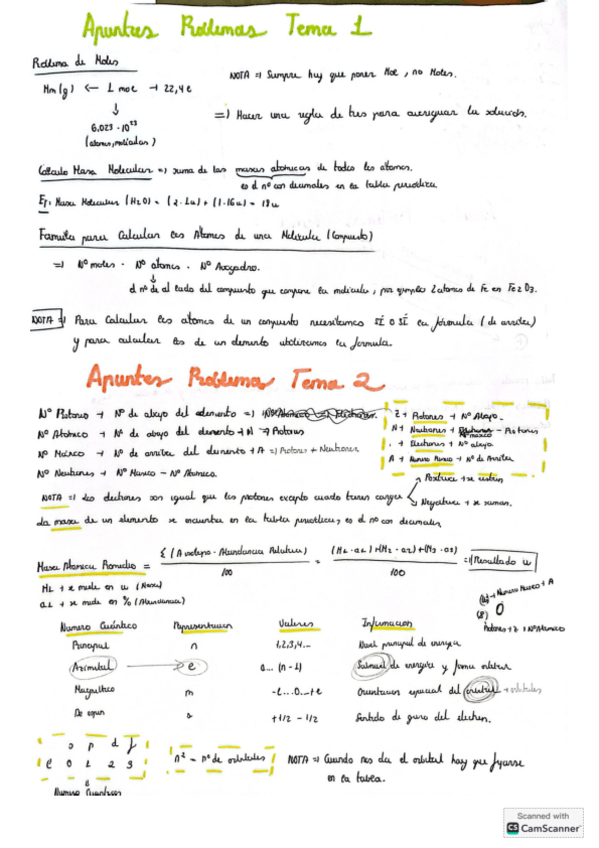 Apuntes Problemas Tema 1
Problema de Moles
Mm(g) ← 1 mol → 22,4 l
NOTA ⇒ Siempre hay que poner Mol, no Moles.
↓
6,023·10²³
(atomos, moléculas)
⇒ Hacer una regla de tres para averiguar la solución.
Cálculo Masa Molecular ⇒ suma de las masas atómicas de todos los átomos.
es el nº con decimales en la tabla periódica
Ej: Masa Molecular (H2O) = (2·1u) + (1·16u) = 18u
Formula para Calcular los Atomos de una Molécula (Compuesto)
⇒ Nº moles · Nº átomos · Nº Avogadro.
↓
el nº de al lado del compuesto que compone la molécula, por ejemplo 2 atomos de Fe en Fe2O3.
NOTA ⇒ Para Calcular los atomos de un compuesto necesitamos SÍ O SÍ la fórmula (de arriba)
y para calcular los de un elemento utilizamos la formula.
Apuntes Problemas Tema 2
Nº Protones → Nº de abajo del elemento ⇒
Nº Atómico → Nº de abajo del elemento → N ⇒ Protones
Nº Másico → Nº de arriba del elemento → A ⇒ Protones + Neutrones
Nº Neutrones → Nº Masico - Nº Atomico.
Z → Protones → Nº Abajo.
N → Neutrones → Nº masico - Protones
. → Electrones → Nº abajo
A → Numero Masico → Nº de Arriba
Positiva → se restan
NOTA ⇒ Los electrones son igual que los protones excepto cuando tienen carga
Negativa → se suman.
La masa de un elemento se encuentra en la tabla periodica, es el nº con decimales
Masa Atomica Promedio = Σ (A isotopo · Abundancia Relativa) / 100 = (M1·a1) + (M2·a2) + (M3·a3) / 100 ⇒ Resultado u
M1 → se mide en u (Masa)
a1 → se mide en % (Abundancia)
(16) → Numero Masico → A
(8) O
Protones → Z → Nº Atomico
Numero Cuántico Representacion Valores Informacion
Principal n 1,2,3,4... Nivel principal de energia
Azimutal → l 0... (n-1) Subnivel de energia y forma orbital
Magnético m -l...0...+l Orientacion espacial del orbital → orbitales
De espin s +1/2 -1/2 Sentido de giro del electron.
s p d f
l 0 1 2 3
Numero Cuanticos
n² = nº de orbitales
NOTA ⇒ Cuando nos da el orbital hay que fijarse
en la tabla.
Scanned with
CS CamScanner